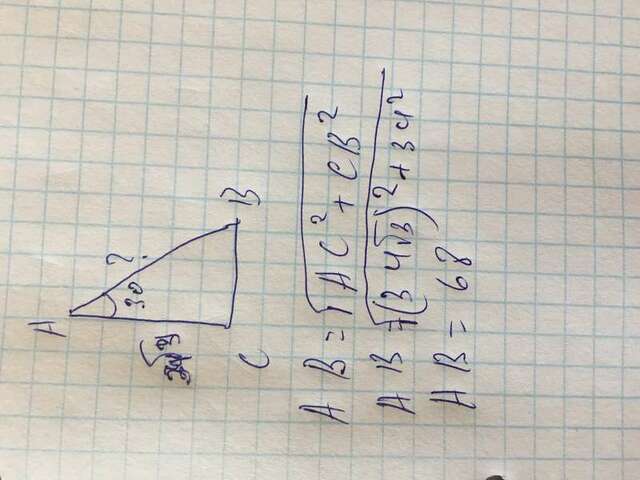 A
30
?
C
B
AB = √AC² + CB²
AB = √(34√3)² + 34²
AB = 68